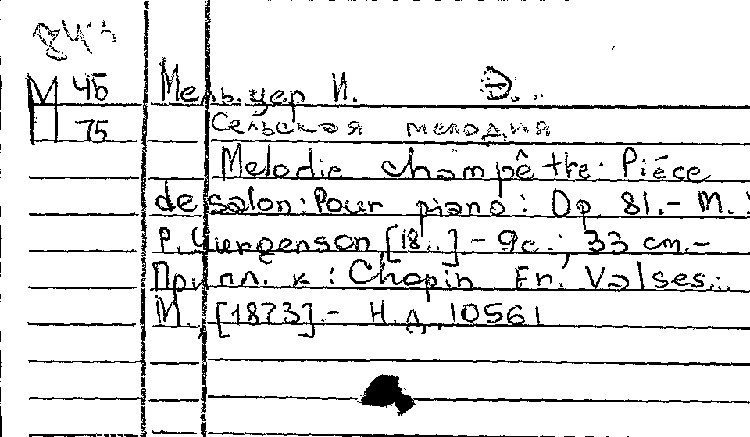 843
М 45 Мельцер И. Э.
Ц 75 Сельская мелодия
Melodie champêtre. Piéce
de salon: Pour piano: Op. 81.- М.:
P. Jurgenson [18..] - 9с.; 33 cm.-
Припл. к: Chopin Fr. Valses..
М. [1873] - Н.д. 10561